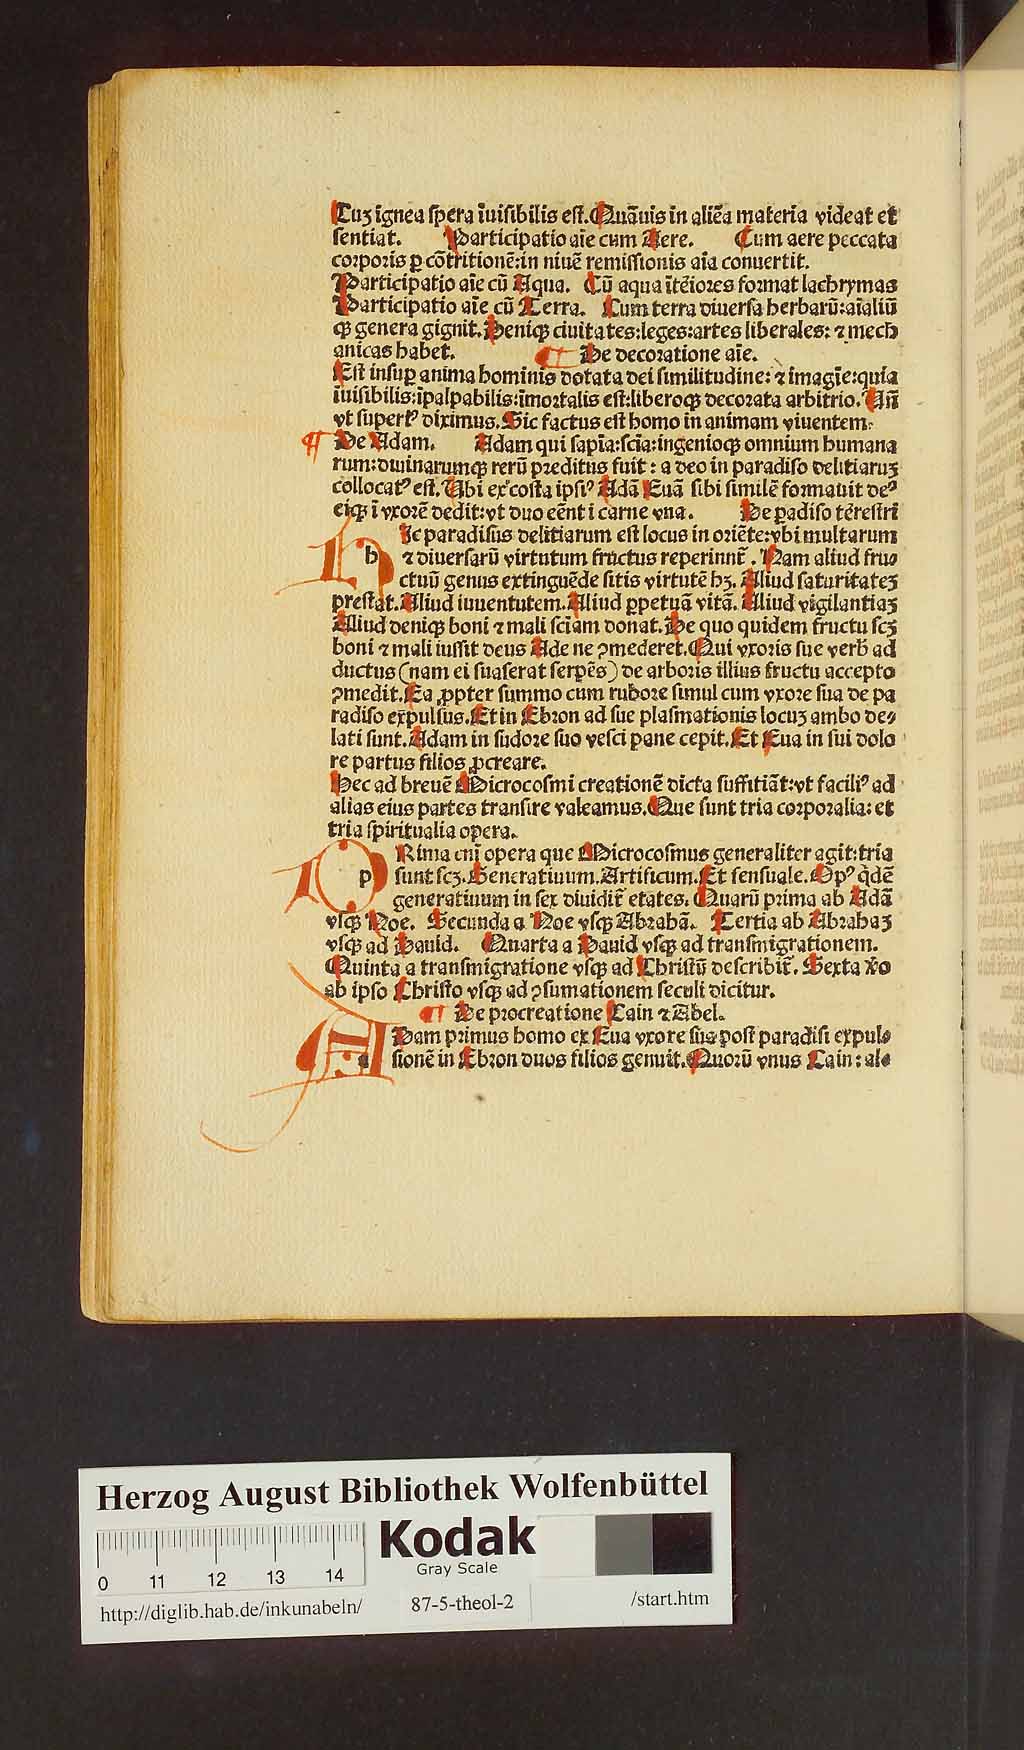 Cuȝ ignea spera īuisibilis est. Quāuis in aliēa materia videat et
sentiat. Participatio aīe cum Aere. Cum aere peccata
corporis ꝑ cōtritionē: in niuē remissionis aīa conuertit.
Participatio aīe cū Aqua. Cū aqua ītēiores format lachrymas
Participatio aīe cū Terra. Cum terra diuersa herbarū: aīaliū
qꝫ genera gignit. Deniqꝫ ciuitates: leges: artes liberales: ⁊ mech
anicas habet. ¶ De decoratione aīe.
Est insuꝑ anima hominis dotata dei similitudine: ⁊ imagīe: quia
īuisibilis: īpalpabilis: īmortalis est: liberoqꝫ decorata arbitrio. Uñ
vt superꝰ diximus. Sic factus est homo in animam viuentem.
¶ De Adam. Adam qui sapīa: scīa: ingenioqꝫ omnium humana
rum: diuinarumqꝫ rerū preditus fuit: a deo in paradiso delitiaruȝ
collocatꝰ est. Ubi ex costa ipsiꝰ Adā Euā sibi similē formauit deꝰ
eiqꝫ ī vxorē dedit: vt duo eēnt i carne vna. De ꝑadiso terestri
h Ic paradisus delitiarum est locus in oriēte: vbi multarum
⁊ diuersarū virtutum fructus reperiunt̄. Nam aliud fru⸗
ctuū genus extinguēde sitis virtutē hȝ. Aliud saturitateȝ
prestat. Aliud iuuentutem. Aliud ꝑpetuā vitā. Aliud vigilantiaȝ
Aliud deniqꝫ boni ⁊ mali sciam donat. De quo quidem fructu scȝ
boni ⁊ mali iussit deus Ade ne ꝯmederet. Qui vxoris sue verb̄ ad
ductus (nam ei suaserat serpēs) de arboris illius fructu accepto
ꝯmedit. Ea ꝓpter summo cum rubore simul cum vxore sua de pa
radiso expulsus. Et in Ebron ad sue plasmationis locuȝ ambo de⸗
lati sunt. Adam in sudore suo vesci pane cepit. Et Eua in sui dolo
re partus filios ꝓcreare.
Hec ad breuē Microcosmi creationē dicta suffitiāt: vt faciliꝰ ad
alias eius partes transire valeamus. Que sunt tria corporalia: et
tria spiritualia opera.
p Rima eni opera que Microcosmus generaliter agit: tria
sunt scȝ. Generatiuum. Artificum. Et sensuale. Opꝰ q̇dē
generatiuum in sex diuidit̄ etates. Quarū prima ab Adā
vsqꝫ Noe. Secunda a Noe vsqꝫ Abrahā. Tertia ab Abrahaȝ
vsqꝫ ad Dauid. Quarta a Dauid vsqꝫ ad transmigrationem.
Quinta a transmigratione vsqꝫ ad Christū describit̄. Sexta v̄o
ab ipso Christo vsqꝫ ad ꝯsumationem seculi dicitur.
¶ De procreatione Cain ⁊ Abel.
a Dam primus homo ex Eua vxore sua post paradisi expul⸗
sionē in Ebron duos filios genuit. Quorū vnus Cain: al⸗
Herzog August Bibliothek Wolfenbüttel
Kodak
Gray Scale
0 11 12 13 14
http://diglib.hab.de/inkunabeln/ 87-5-theol-2 /start.htm